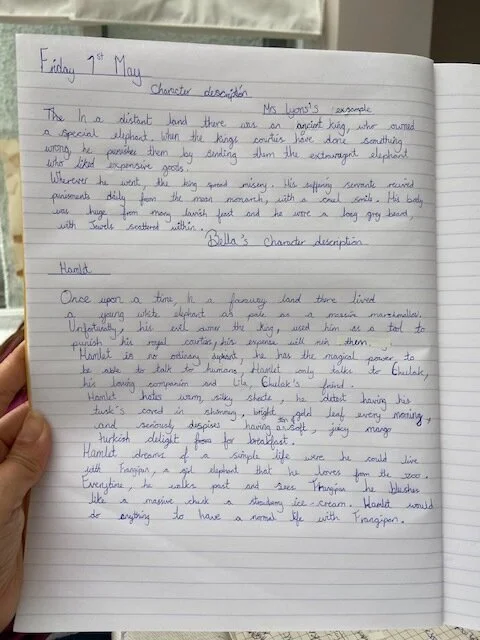 Friday 1st May
Character description
Ms Lyons's example
The In a distant land there was an ancient king, who owned
a special elephant. When the kings courties have done something
wrong, he punishes them by sending them the extravagnt elephant
who liked expensive goods.
Wherever he went, the king spread misery. His suffering servants recived
punisments daily from the mean monarch, with a cruel smile. His body
was huge from many lavish feast and he wore a long grey beard,
with Jewels scattered within.
Bella's Character description
Hamlet
Once upon a time, In a faraway land there lived
a young white elephant as pale as a massive marshmallow.
Unfortunatly, his evil owner the king, used him as a tool to
punish his royal courties, his expense will ruin them.
Hamlet is no ordinary elephant, he has the magical power to
be able to talk to humans, Hamlet only talks to Chulak,
his loving companion and Lila, Chulak's friend.
Hamlet hates warm, silky sheets, he detest having his
tusk's coverd in shimmring, bright gold leaf every morning,
and seriously despises having soft, juicy mango
turkish delight for breakfast.
Hamlet dreams of a simple life were he could live
with Frangipan, a girl elephant that he loves from the zoo.
Everytime, he walks past and sees Frangipan he blushes
like a massive chunk a strawberry ice-cream. Hamlet would
do anything to have a normal life with Frangipan.